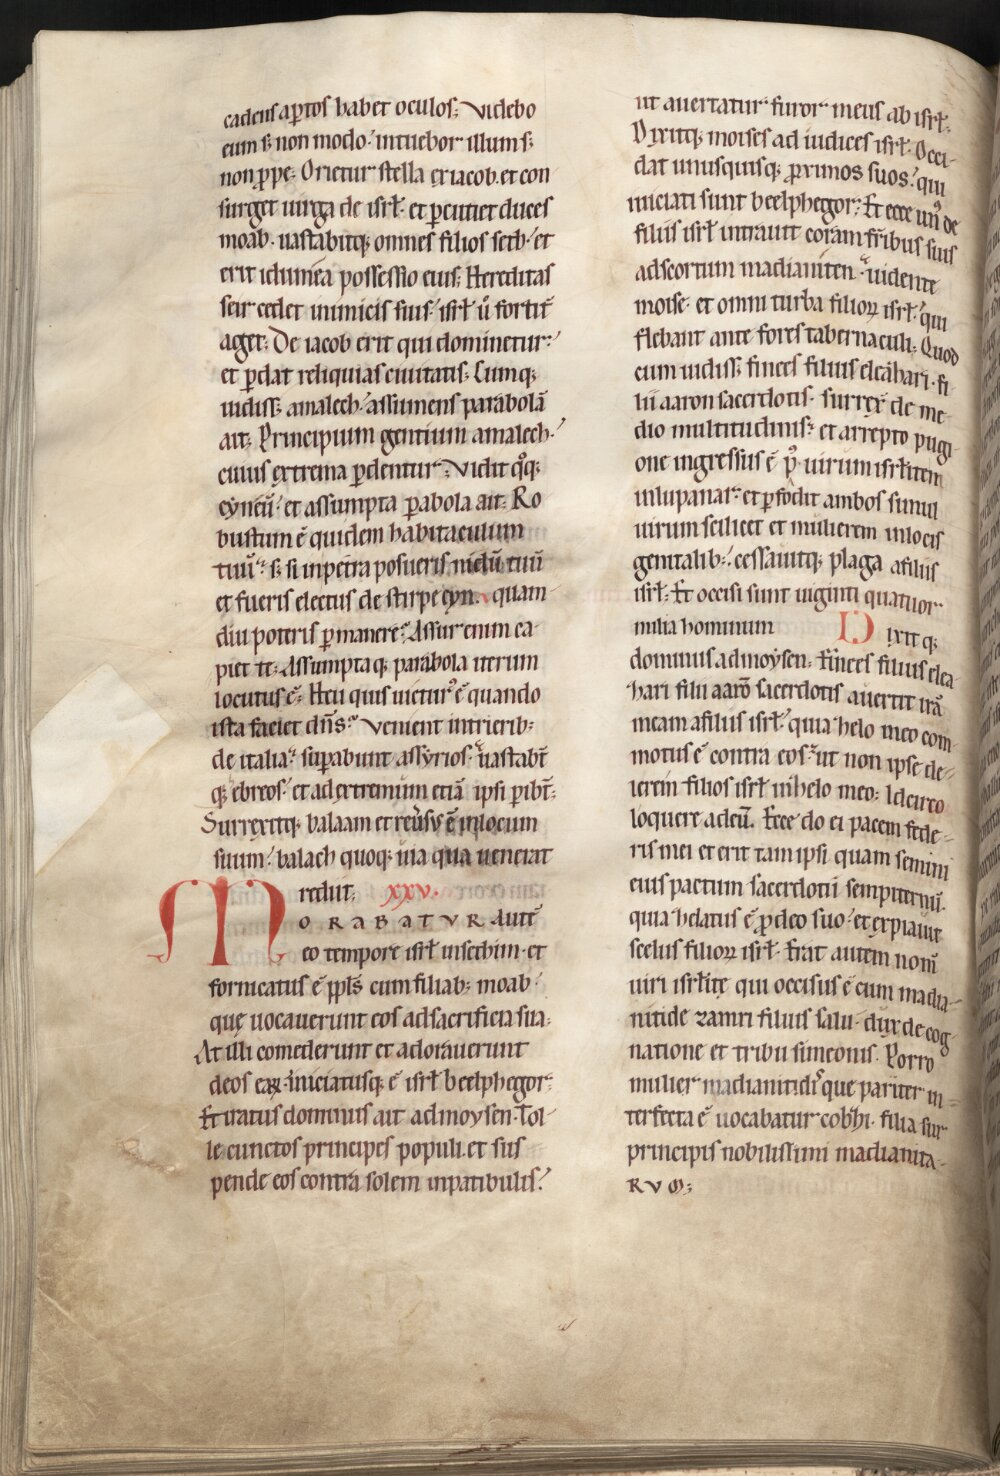 cadens aptos habet oculos; Videbo
eum s; non modo; intuebor illum s;
non ppe; Orietur stella ex iacob. et con
surget uirga de isrl. et pcutiet duces
moab. uastabitq; omnes filios seth. et
erit idumea possessio eius; Hereditas
seir cedet inimicis suis. isrl u fortit
aget; De iacob erit qui dominetur;
et pdat reliquias ciuitatis; Cumq;
uidiss; amalech. assumens parabolā
ait; Principium gentium amalech.
cuius extrema pdentur; Vidit qoq;
cyneū. et assumpta parabola ait; Ro
bustum ē quidem habitaculum
tuū; s; si in petra posueris nidū tuū
et fueris electus de stirpe cyn. quam
diu poteris pmanere; Assur enim ca
piet te; Assumptaq; parabola iterum
locutus ē; Heu quis uictur ē quando
ista faciet dns; Venient in trierib;
de italia; supabunt assyrios. uastabt
q; ebreos. et ad extremum etiā ipsi pibt;
Surrexitq; balaam et reuersus ē in locum
suum. balach quoq; uia qua uenerat
rediit; XXV.
MORABATUR Autē
eo tempore isrl in sethim. et
fornicatus ē ppls cum filiab; moab.
que uocauerunt eos ad sacrificia sua;
At illi comederunt et adorauerunt
deos eaꝝ. iniciatusq; ē isrl beelphegor;
Et iratus dominus ait ad moysen. Tol
le cunctos principes populi. et sus
pende eos contra solem in patibulis;
ut auertatur furor meus ab isrl;
Dixitq; moises ad iudices isrl. Occi
dat unusquisq; proximos suos; qui
iniciati sunt beelphegor; Et ecce un de
filiis isrl intrauit coram frībus suis
ad scortum madianiten. uidente
moise. et omni turba filioꝝ isrl. qui
flebant ante fores tabernaculi; Quod
cum uidiss; finees filius eleahari. fi
lii aaron sacerdotis. surrex de me
dio multitudinis; et arrepto pugi
one ingressus ē p uirum isrlitem
in lupanar; et pfodit ambos simul
uirum scilicet et mulierem in locis
genitalib; cessauitq; plaga a filiis
isrl; Et occisi sunt uiginti quatuor
milia hominum Dixitq;
dominus ad moysen; finees filius elea
hari filii aarō sacerdotis auertit irā
meam a filiis isrl. quia helo meo com
motus ē contra eos; ut non ipse de
lerem filios isrl in helo meo; Idcirco
loquere ad eū. Ecce do ei pacem fede
ris mei et erit tam ipsi quam semini
eius pactum sacerdotii sempiternū.
quia helatus ē pro deo suo. et expiauit
scelus filioꝝ isrl. Erat autem nom̄
uiri isrlite qui occisus ē cum madia
nitide zamri filius salu. dux de cog
natione et tribu simeonis. Porro
mulier madianitidis que pariter in
terfecta ē uocabatur cobhi. filia sur
principis nobilissimi madianita
RVM;